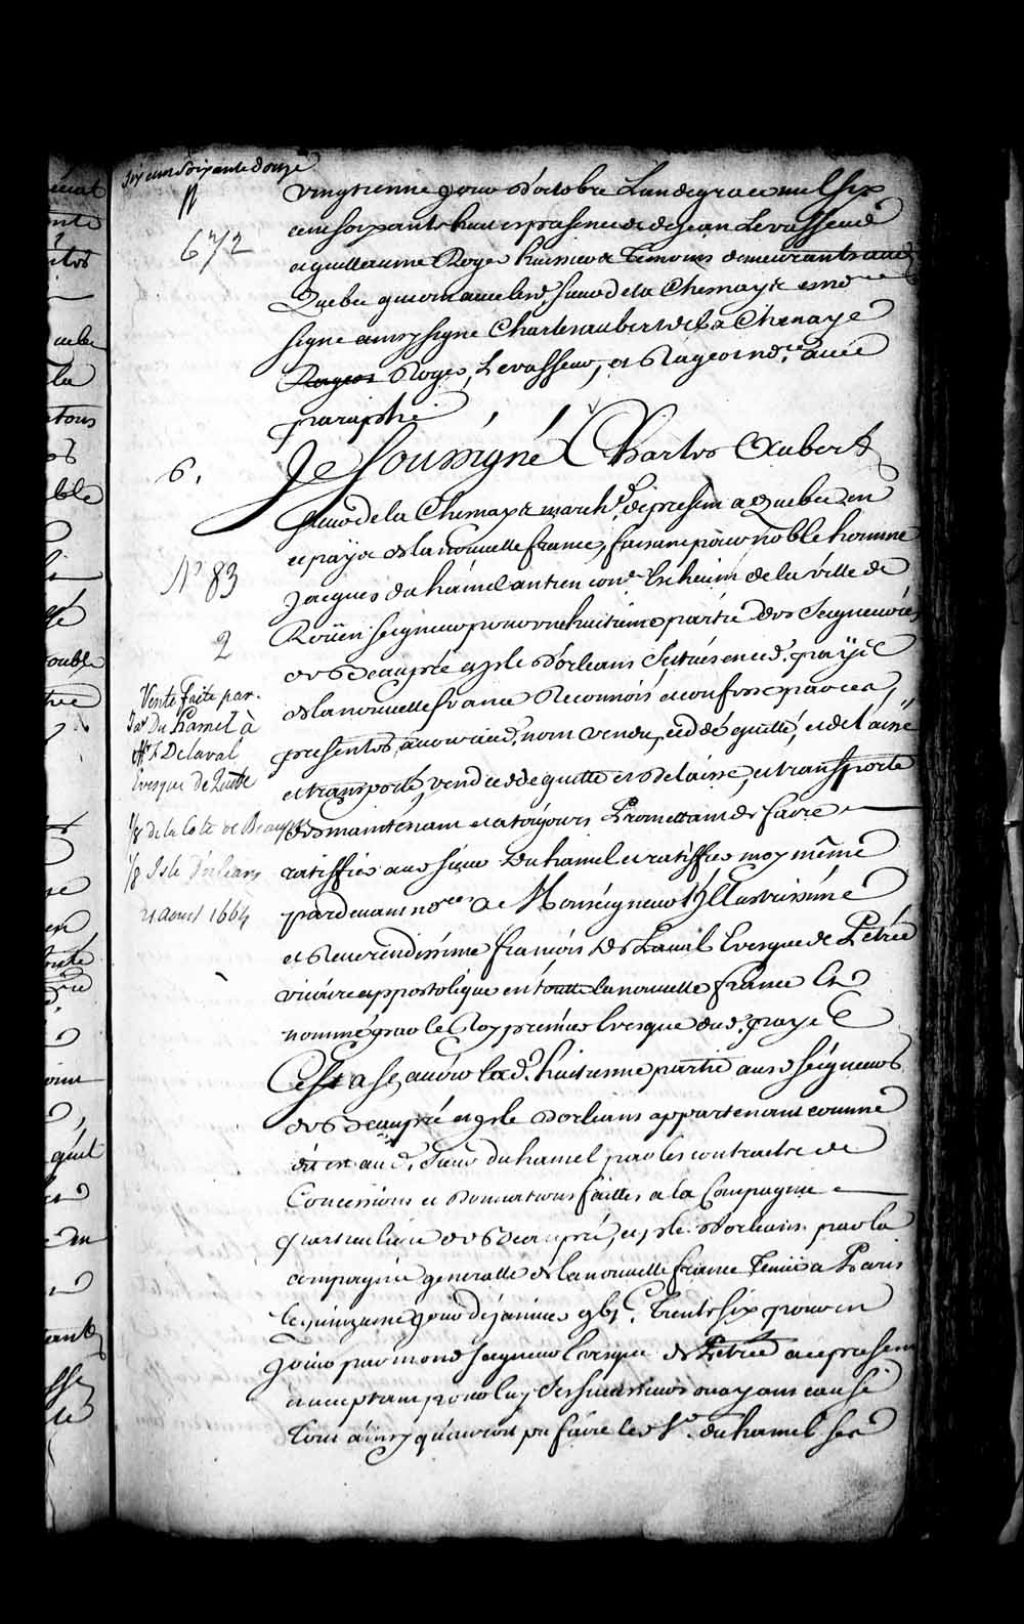 six cens soixante douze
6 n/2
vingtiesme jour d'octobre L'an de grace mil six
cens soixante huict es presence de Jean Levasseur
et guillaume Roger huissiers Temoins demeurants aud
Quebec qui ont avec led. sieur de la Chesnaye et no.re
signé ainsy signé Charles aubert de la Chenaye
Rageot Roger, Levasseur, et Rageot no.re avec
paraphe
6.
Je soussigné Charles Aubert
sieur de la Chesnaye march.d de present a Quebec en
ce païs de la nouvelle france, faisant pour noble homme
N.o 83
Jacques du hamel antien con.er Eschevin de la ville de
2
Roüen seigneur pour une huitiéme partie des Seigneuries
de Beaupré et isle d'orleans scituées en ced. païs
Vente faite par
Jac. Du Hamel à
M.r F. Delaval
Evesque de Québec
1/8 de la Côte de Beaupré
1/8 Isle D'orleans
21 aoust 1664
de la nouvelle france Reconnois et confesse par ces
presentes, avoir aud. nom vendu, ceddé quitté, et delaissé
et transporté, vend cedde quitte et delaisse, et transporte
des maintenant et a toujours Promettant de faire
ratiffier aud sieur Duhamel et ratiffier moy même
pardevant no.res A Monseigneur Illustrissime
et Reverendissime françois De Laval Evesque de Petrée
vicaire appostolique en toutte la nouvelle france Et
nommé par le Roy premier Evesque dud. païs
C'est a sçavoir lad. huitiesme partie aux d seigneuries
de Beaupré et isle d'orleans appartenant comme
dit est aud. Sieur duhamel par les contracts de
Concessions et Donnations faittes a la Compagnie
particuliere de Beaupré, et isle d'orleans par la
compagnie generalle de la nouvelle france Tenüe a Paris
le quinziéme jour de janvier gbi.C Trente six pour en
jouir par mond seigneur Evesque de Petrée ace present
et acceptant pour luy ses successeurs ou ayans cause
Tout ainsy qu'auroit pu faire led S.r duhamel ses